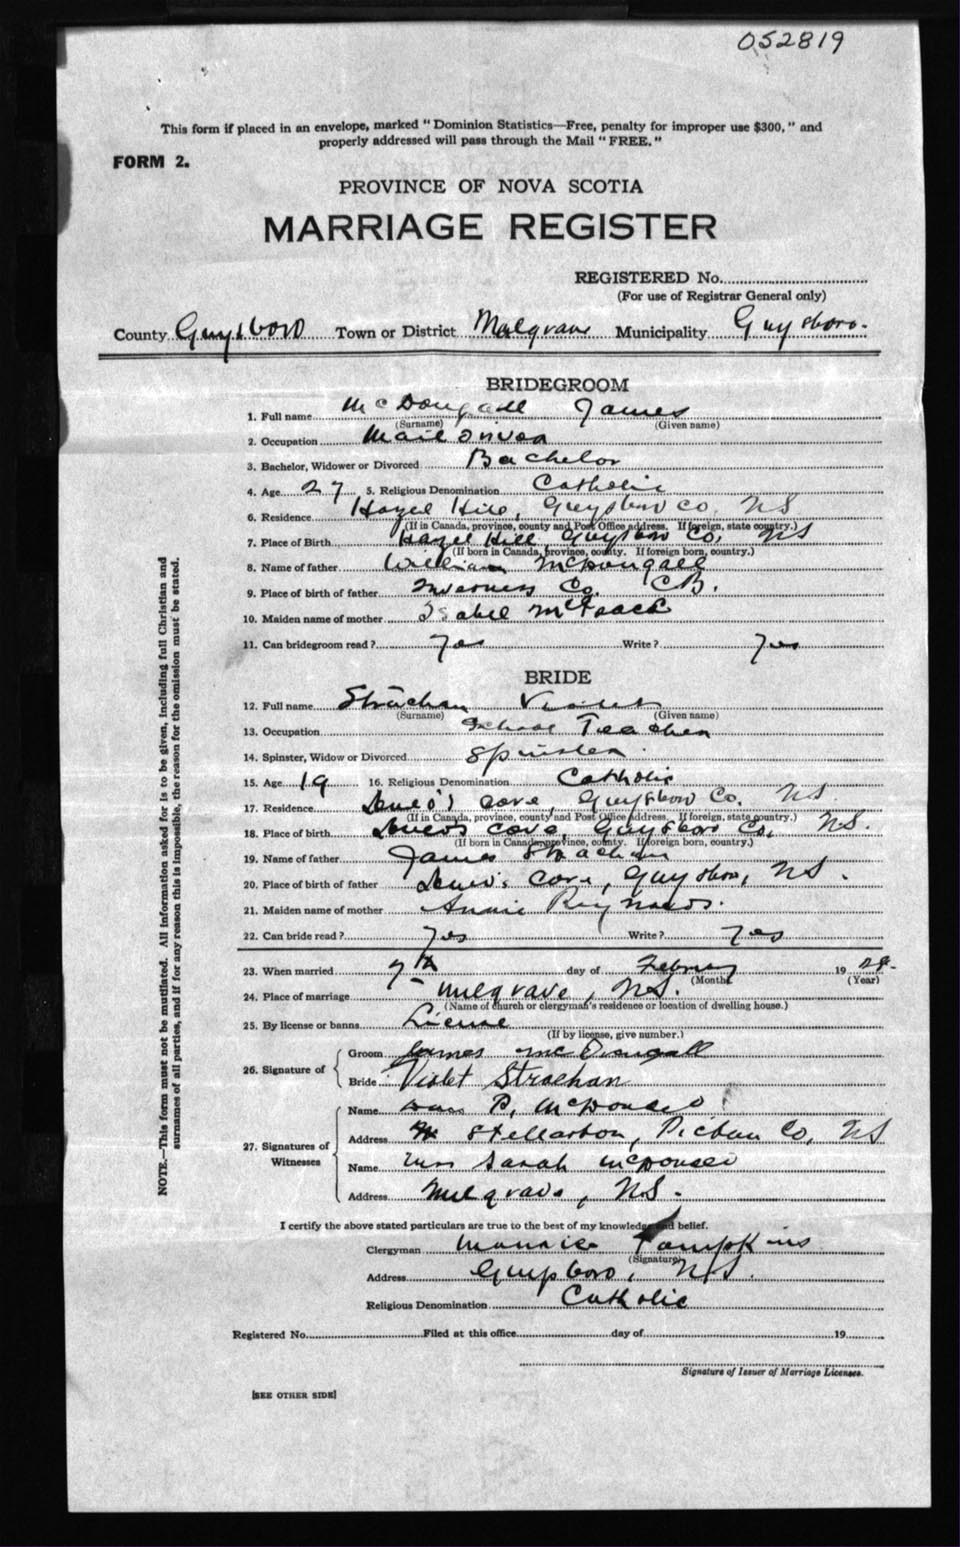 052819
This form if placed in an envelope, marked "Dominion Statistics—Free, penalty for improper use $300," and
properly addressed will pass through the Mail "FREE."
FORM 2.
PROVINCE OF NOVA SCOTIA
MARRIAGE REGISTER
REGISTERED No.
(For use of Registrar General only)
County Guysboro Town or District Mulgrave Municipality Guysboro.
BRIDEGROOM
1. Full name McDougall James
(Surname) (Given name)
2. Occupation Mail Driver
3. Bachelor, Widower or Divorced Bachelor
4. Age 27 5. Religious Denomination Catholic
6. Residence Hazel Hill, Guysboro Co. NS
(If in Canada, province, county and Post Office address. If foreign, state country.)
7. Place of Birth Hazel Hill, Guysboro Co, NS
(If born in Canada, province, county. If foreign born, country.)
8. Name of father William McDougall
9. Place of birth of father Inverness Co. CB.
10. Maiden name of mother Isabel
11. Can bridegroom read? Yes Write? Yes
BRIDE
12. Full name Strachan Violet
(Surname) (Given name)
13. Occupation School Teacher
14. Spinster, Widow or Divorced Spinster
15. Age 19 16. Religious Denomination Catholic
17. Residence Cove, Guysboro Co. NS
(If in Canada, province, county and Post Office address. If foreign, state country.)
18. Place of birth Cove, Guysboro Co, NS.
(If born in Canada, province, county. If foreign born, country.)
19. Name of father James Strachan
20. Place of birth of father Cove, Guysboro, NS.
21. Maiden name of mother Annie Reynolds.
22. Can bride read? Yes Write? Yes
23. When married 7th day of February 19
(Month) (Year)
24. Place of marriage Mulgrave, NS.
(Name of church or clergyman's residence or location of dwelling house.)
25. By license or banns License
(If by license, give number.)
26. Signature of
Groom James McDougall
Bride Violet Strachan
27. Signatures of Witnesses
Name P.
Address Stellarton, Pictou Co, NS
Name Mrs Sarah
Address Mulgrave, NS.
I certify the above stated particulars are true to the best of my knowledge and belief.
Clergyman Maurice Tompkins
(Signature)
Address Guysboro, NS.
Religious Denomination Catholic
Registered No. Filed at this office day of 19
Signature of Issuer of Marriage Licenses.
[SEE OTHER SIDE]
NOTE.—This form must not be mutilated. All information asked for is to be given, including full Christian and
surnames of all parties, and if for any reason this is impossible, the reason for the omission must be stated.